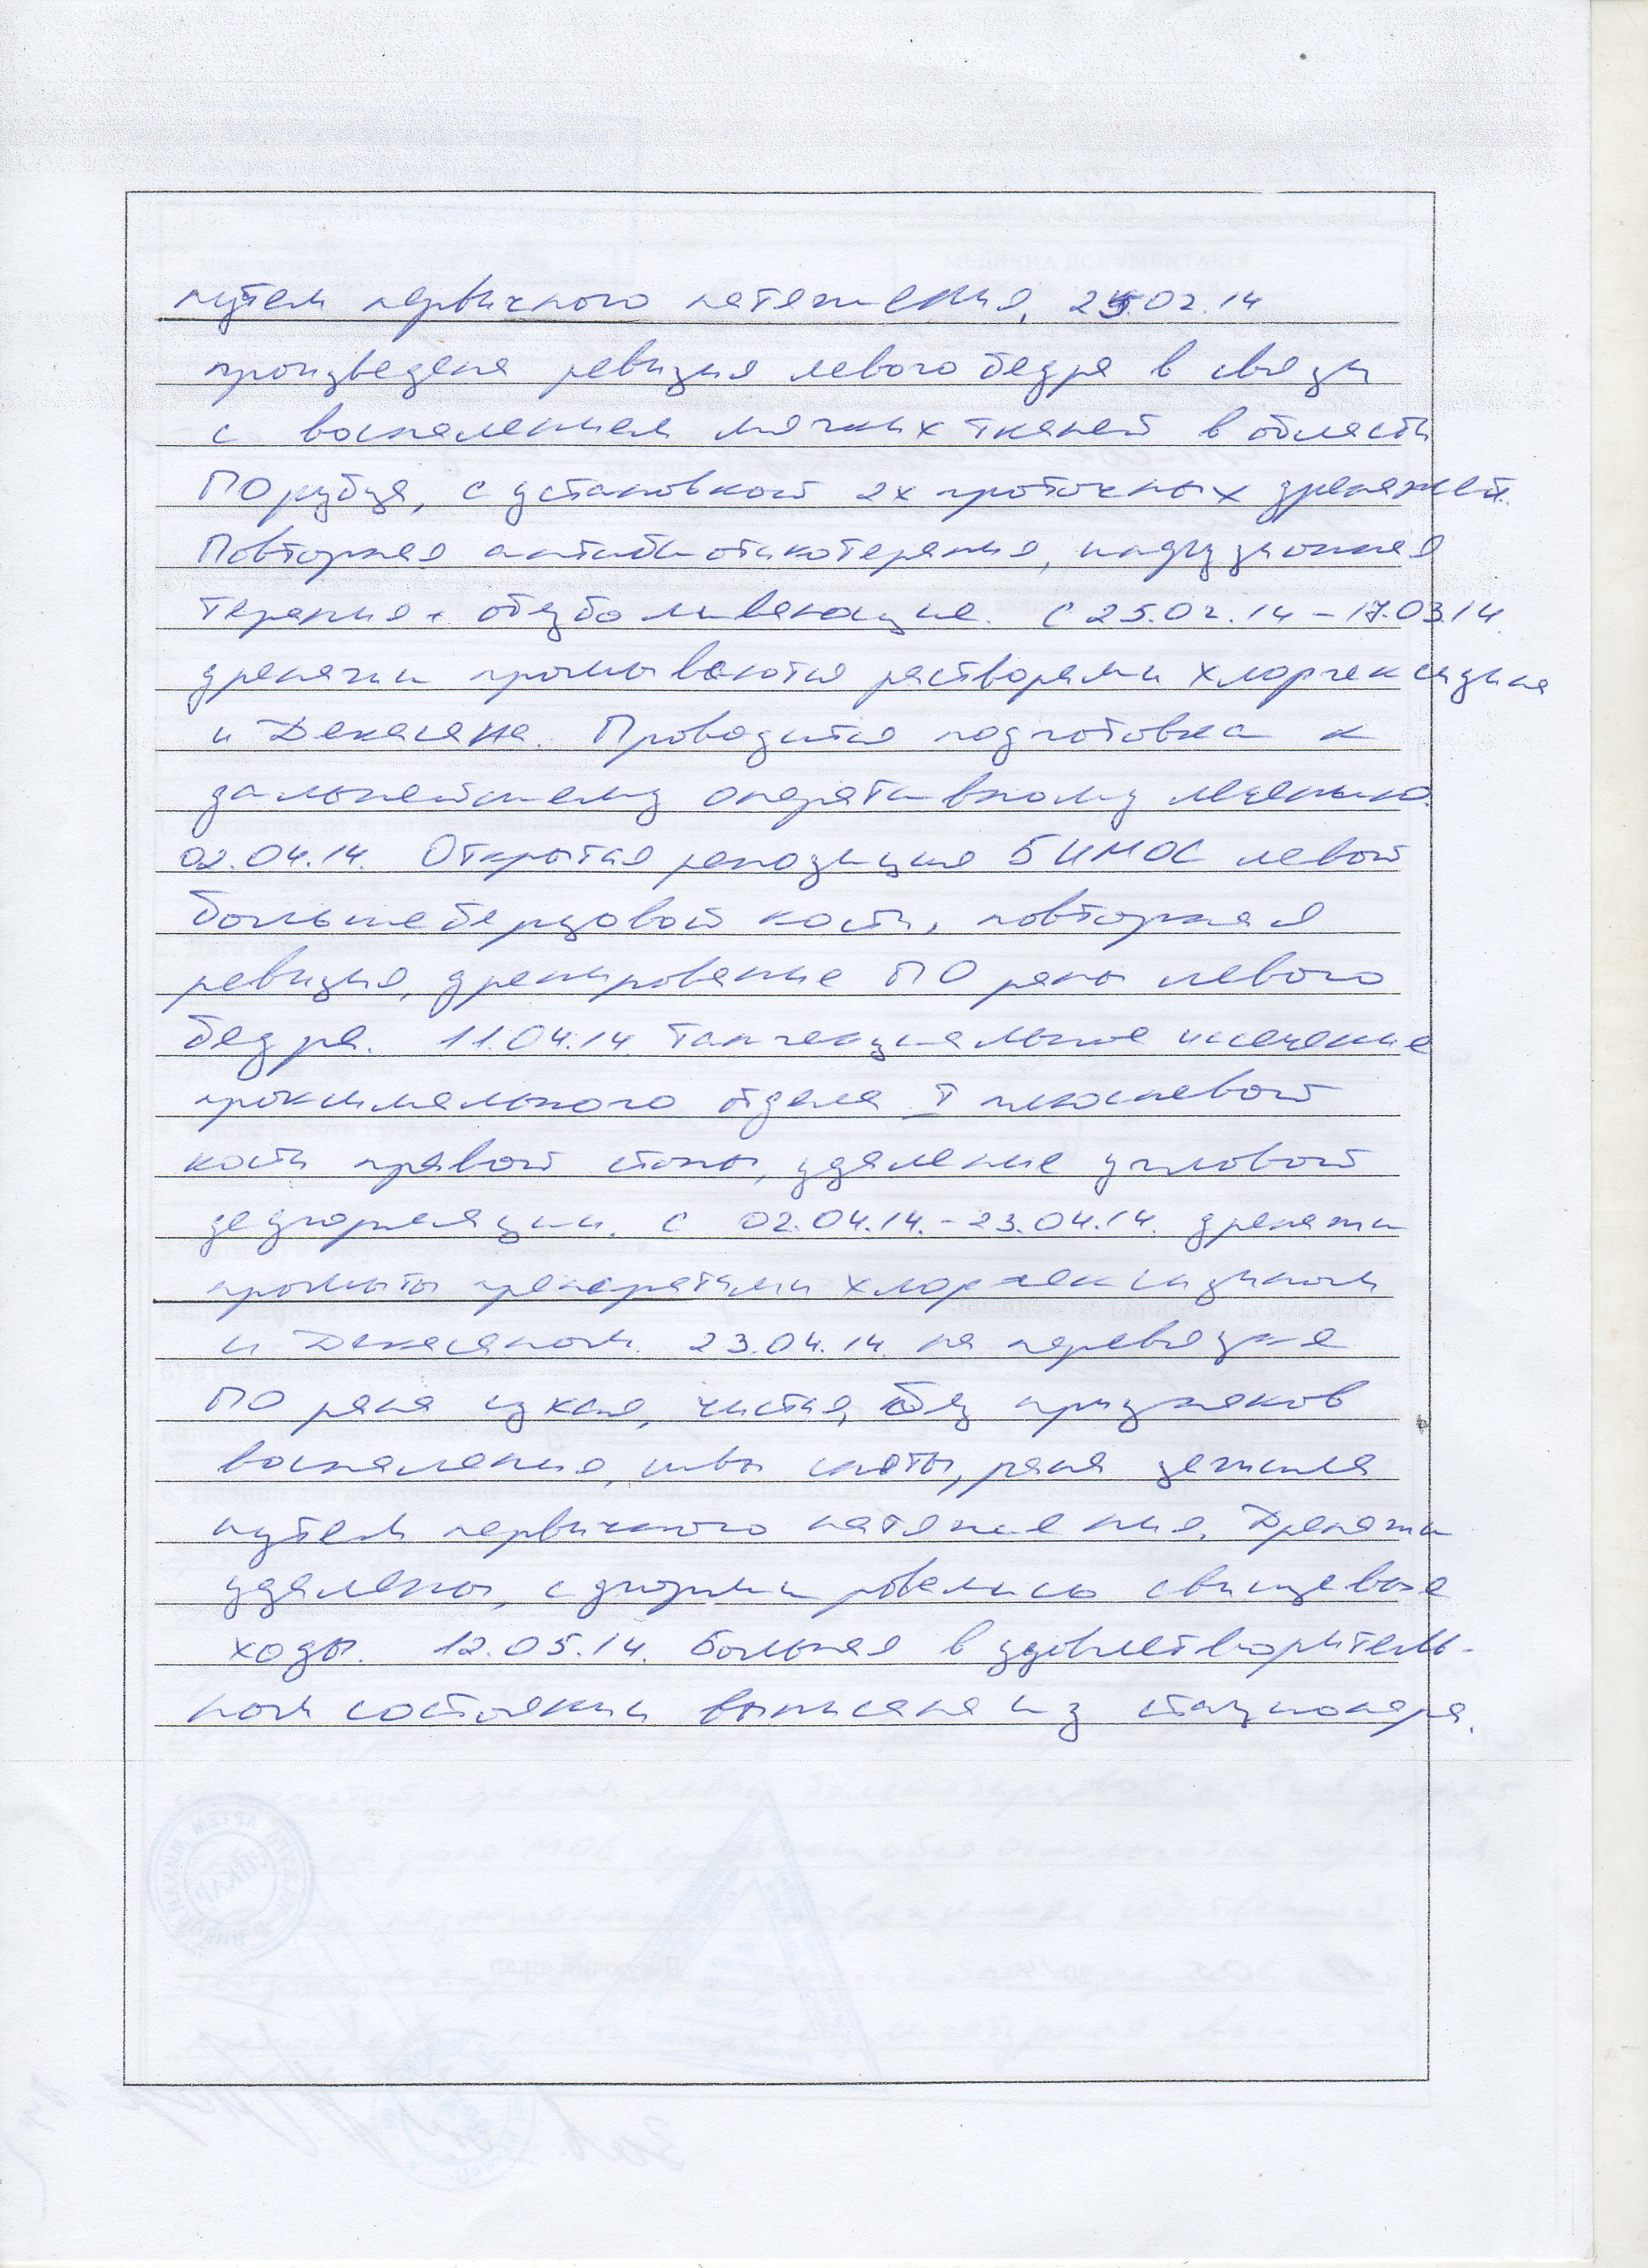 путем первичного натяжения, 25.02.14
произведена ревизия левого бедра в связи
с воспалением мягких тканей в области
ПО рубца, с установкой 2х проточных дренажей.
Повторная антибиотикотерапия, инфузионная
терапия, обезболивающие. С 25.02.14 – 17.03.14
дренажи промываются растворами хлоргексидина
и Декасана. Проводится подготовка к
дальнейшему оперативному лечению.
02.04.14. Открытая репозиция БИМОС левой
большеберцовой кости, повторная
ревизия, дренирование ПО раны левого
бедра. 11.04.14 тангенциальное иссечение
проксимального отдела I плюсневой
кости правой стопы, удаление угловой
деформации. С 02.04.14. – 23.04.14. дренажи
промыты препаратами хлоргексидином
и Декасаном. 23.04.14. на перевязке
ПО рана сухая, чистая, без признаков
воспаления, швы сняты, рана зажила
путем первичного натяжения. Дренажи
удалены, сформировались свищевые
ходы. 12.05.14. Больная в удовлетворитель-
ном состоянии выписана из стационара.